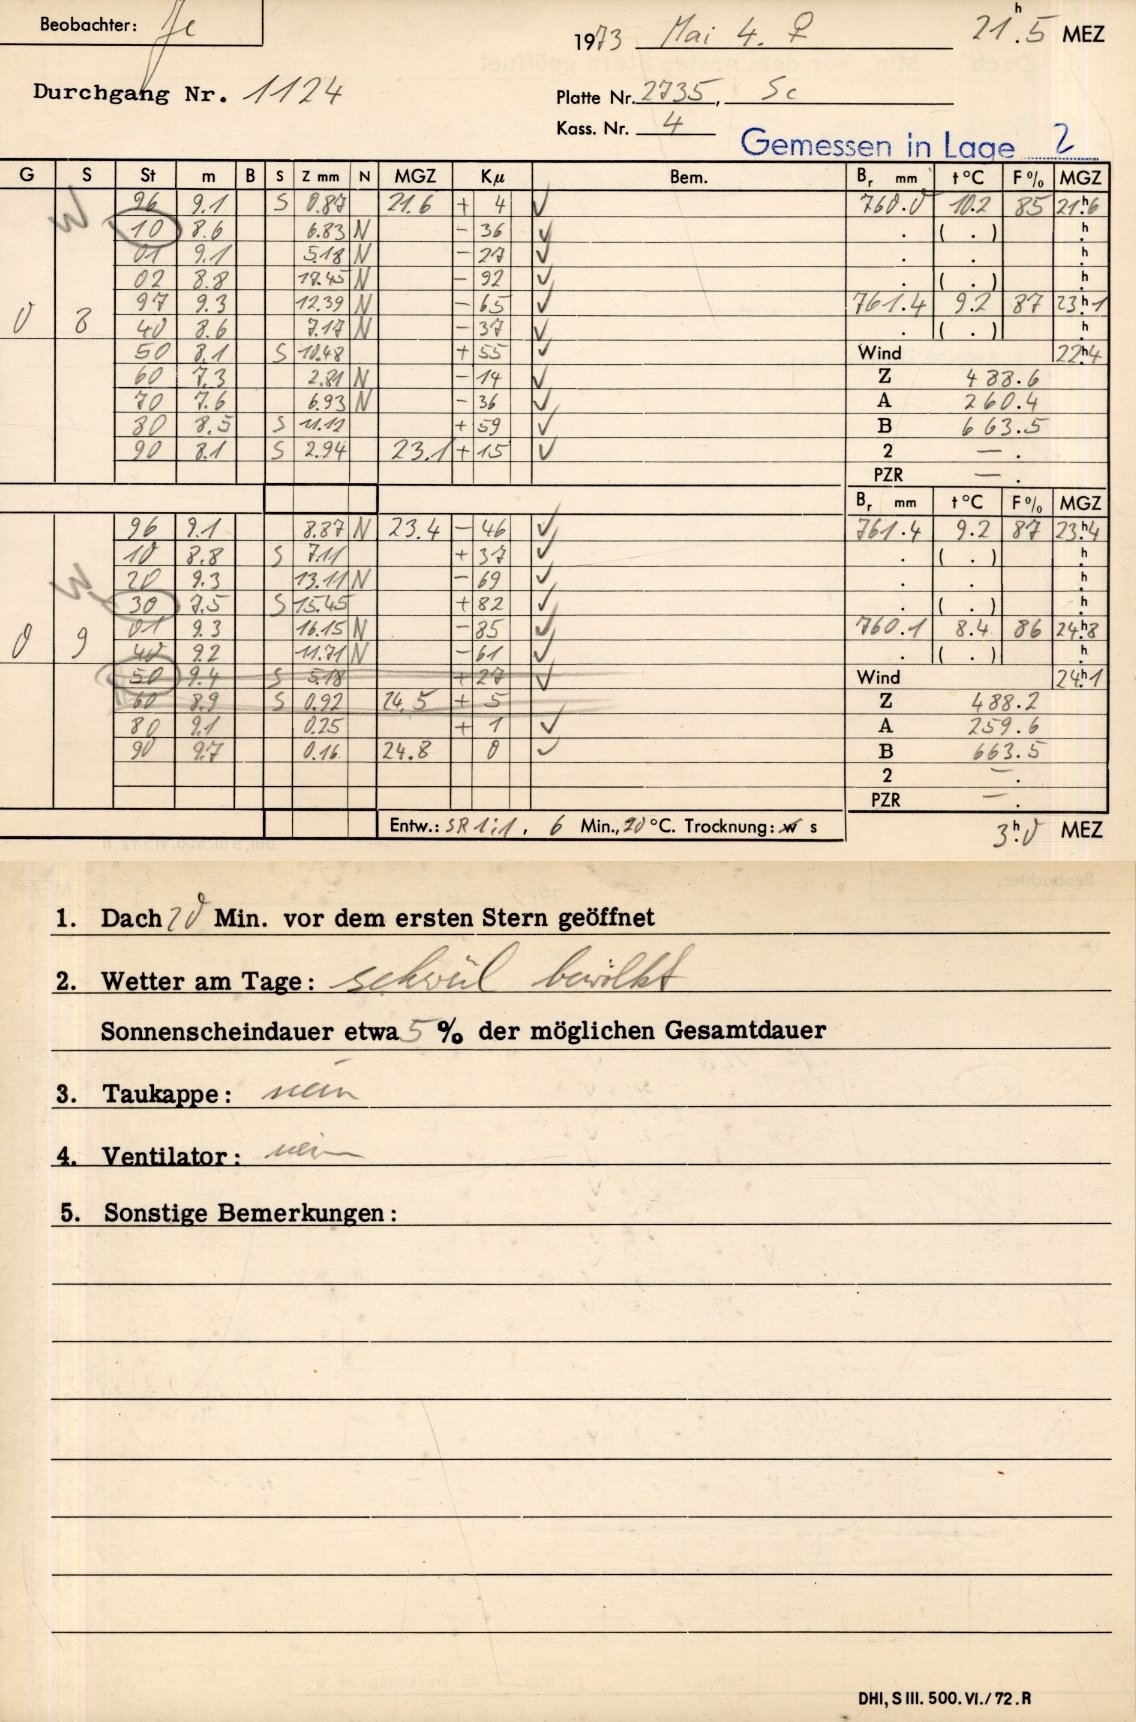 Beobachter: Je
1973 Mai 4. ♀ 21h.5 MEZ
Durchgang Nr. 1124
Platte Nr. 2735, Sc
Kass. Nr. 4
Gemessen in Lage 2
G S St m B S Z mm N MGZ Kμ Bem. Br mm t°C F% MGZ
96 9.1 S 0.87 21.6 + 4 ✓ 760.0 10.2 85 21h.6
10 8.6 6.83 N - 36 ✓ . ( . ) h.
01 9.1 5.18 N - 27 ✓ . . h.
02 8.8 17.45 N - 92 ✓ . ( . ) h.
97 9.3 12.39 N - 65 ✓ 761.4 9.2 87 23h.1
0 8 40 8.6 7.17 N - 37 ✓ . ( . ) h.
50 8.1 S 10.48 + 55 ✓ Wind 22h.4
60 7.3 2.81 N - 14 ✓ Z 488.6
70 7.6 6.93 N - 36 ✓ A 260.4
80 8.5 S 11.12 + 59 ✓ B 663.5
90 8.1 S 2.94 23.1 + 15 ✓ 2 — .
PZR — .
Br mm t°C F% MGZ
96 9.1 8.87 N 23.4 - 46 ✓ 761.4 9.2 87 23h.4
10 8.8 S 7.11 + 37 ✓ . ( . ) h.
20 9.3 13.11 N - 69 ✓ . . h.
30 7.5 S 15.45 + 82 ✓ . ( . ) h.
01 9.3 16.15 N - 85 ✓ 760.1 8.4 86 24h.8
0 9 40 9.2 11.71 N - 61 ✓ . ( . ) h.
50 9.4 S 5.18 + 27 ✓ Wind 24h.1
60 8.9 S 0.92 24.5 + 5 Z 488.2
80 9.1 0.25 + 1 ✓ A 259.6
90 9.7 0.16 24.8 0 ✓ B 663.5
2 — .
PZR — .
Entw.: SR 1:1, 6 Min., 20 °C. Trocknung: w s 3h.0 MEZ
1. Dach 20 Min. vor dem ersten Stern geöffnet
2. Wetter am Tage: schwül bewölkt
Sonnenscheindauer etwa 5 % der möglichen Gesamtdauer
3. Taukappe: nein
4. Ventilator: nein
5. Sonstige Bemerkungen:
DHI, S III. 500. VI./72. R